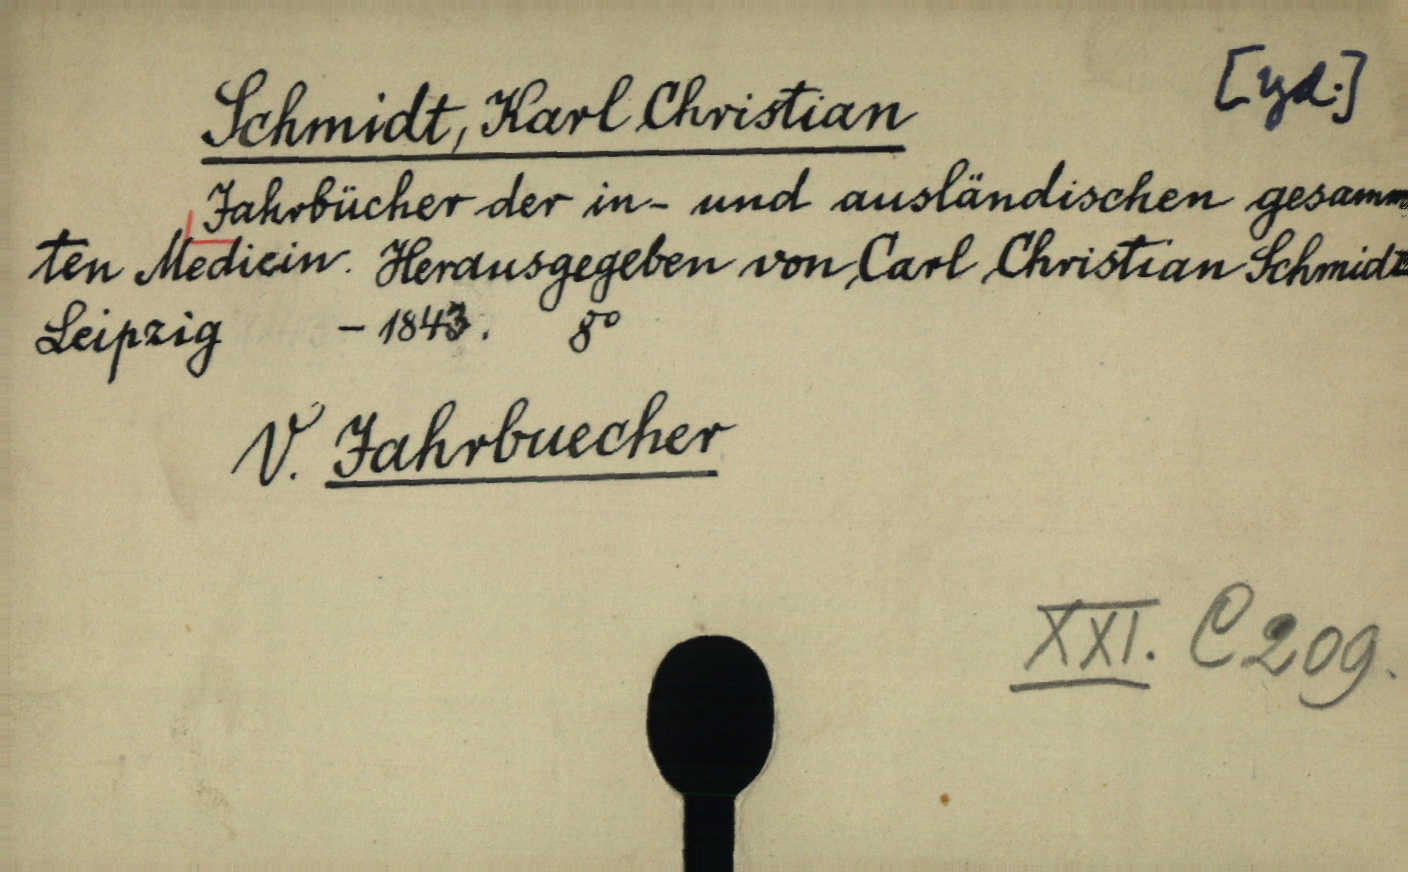 [yd.]
Schmidt, Karl Christian
Jahrbücher der in- und ausländischen gesamm
ten Medicin. Herausgegeben von Carl Christian Schmidt
Leipzig – 1843. 8°
V. Jahrbuecher
XXI. C 209.